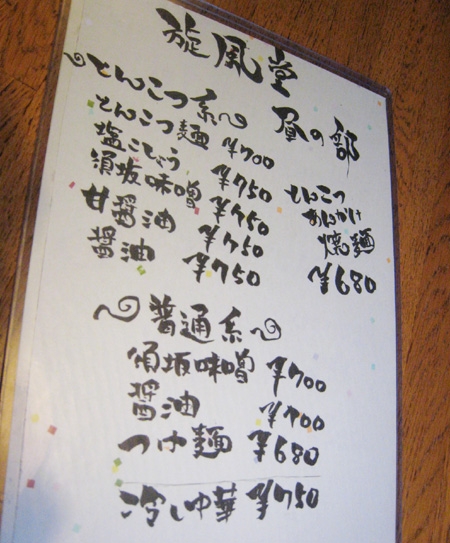 旋風堂
昼の部
とんこつ系
とんこつ麺 ¥700
塩こしょう ¥750
須坂味噌 ¥750
甘醤油 ¥750
醤油 ¥750
とんこつ
あんかけ
焼麺
¥680
普通系
須坂味噌 ¥700
醤油 ¥700
つけ麺 ¥680
冷し中華 ¥750